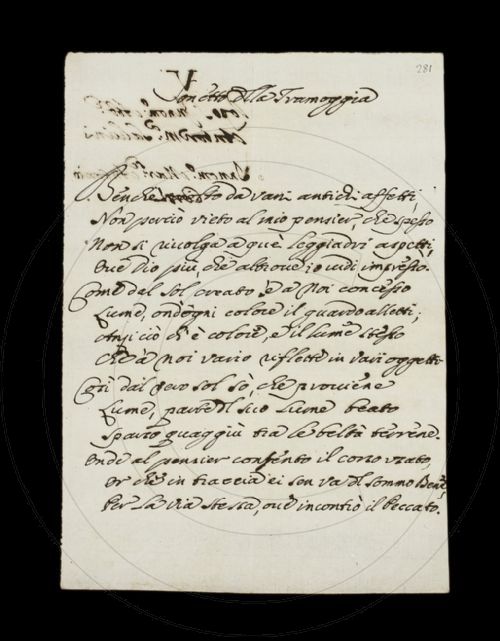 281
V
Sonetto della Tramoggia
Benche da vani antichi affetti,
Non perciò vieto al mio pensier, che spesso
Non si rivolga a que' leggiadri aspetti,
Ove Dio più, che altrove io vidi impresso.
Come dal Sol creato è a noi concesso
Lume, ond'ogni colore il guardo alletti;
Anzi ciò ch'è colore, è il lume stesso
Che a noi vario riflette in vari oggetti
Così dal vero sol so, che proviene
Lume, parte del suo lume beato
Sparso quaggiù tra le beltà terrene.
Onde al pensier consento il corso usato,
Or che in traccia ei sen va del sommo Bene,
Per la via stessa, ov'è incontrò il Peccato.